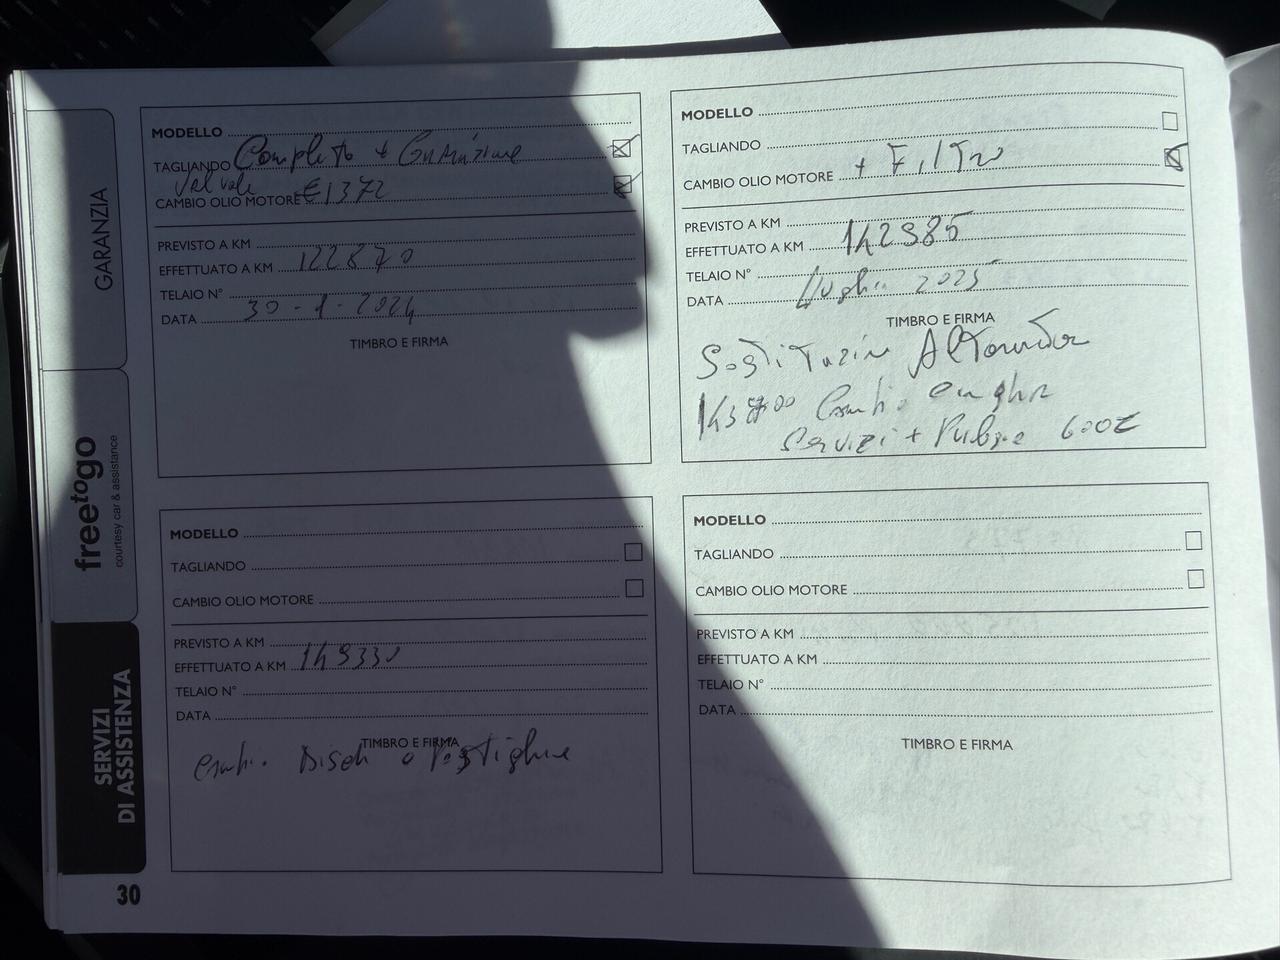 GARANZIA
freetogo
courtesy car & assistance
SERVIZI
DI ASSISTENZA
30
MODELLO
TAGLIANDO Completo + Guarnizione
Valvole
CAMBIO OLIO MOTORE €1372
PREVISTO A KM
EFFETTUATO A KM 122870
TELAIO N°
DATA 30-1-2024
TIMBRO E FIRMA
MODELLO
TAGLIANDO
CAMBIO OLIO MOTORE + Filtro
PREVISTO A KM
EFFETTUATO A KM 142985
TELAIO N°
DATA Luglio 2025
TIMBRO E FIRMA
Sostituzione Alternatore
Cambio cinghia
Servizi + Pulegge 600€
MODELLO
TAGLIANDO
CAMBIO OLIO MOTORE
PREVISTO A KM
EFFETTUATO A KM 149330
TELAIO N°
DATA
TIMBRO E FIRMA
Cambio Dischi e Pastiglie
MODELLO
TAGLIANDO
CAMBIO OLIO MOTORE
PREVISTO A KM
EFFETTUATO A KM
TELAIO N°
DATA
TIMBRO E FIRMA